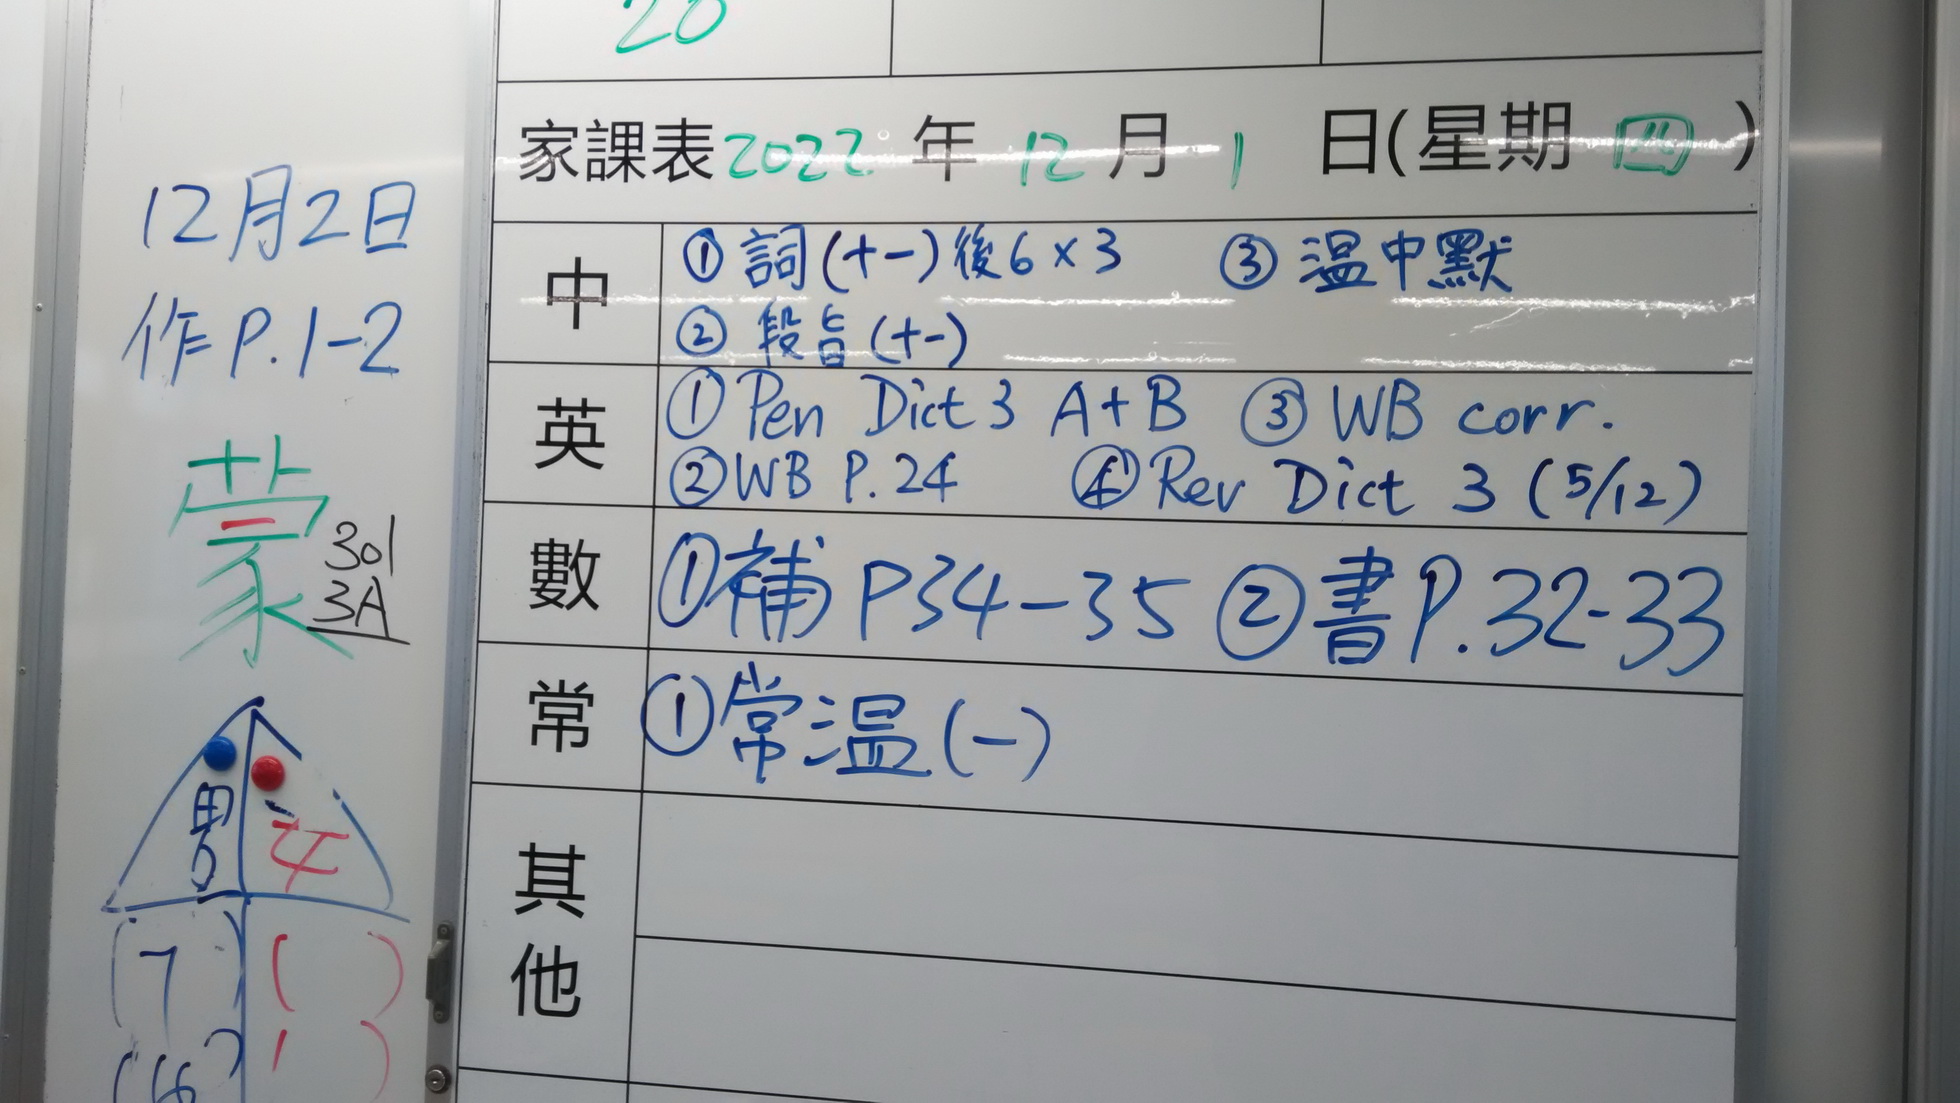 12月2日
作P.1-2
蒙
301
3A
男 女
(7) ( )
20
家課表2022年12月1日(星期四)
中
① 詞(十一)後6×3 ③ 温中默
② 段旨(十一)
英
① Pen Dict 3 A+B ③ WB corr.
② WB P.24 ④ Rev Dict 3 (5/12)
數
①補P34-35 ②書P.32-33
常
①常温(一)
其
他